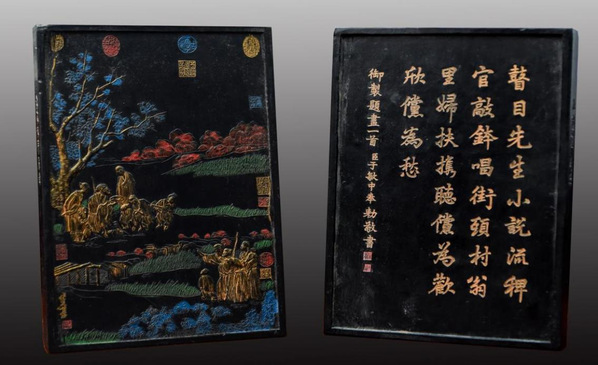 瞽目先生小說流稗
官敲鉢唱街頭村翁
里婦扶攜聽儻為歡
欣儻為愁
御製題畫一首 臣于敏中奉勅敬書